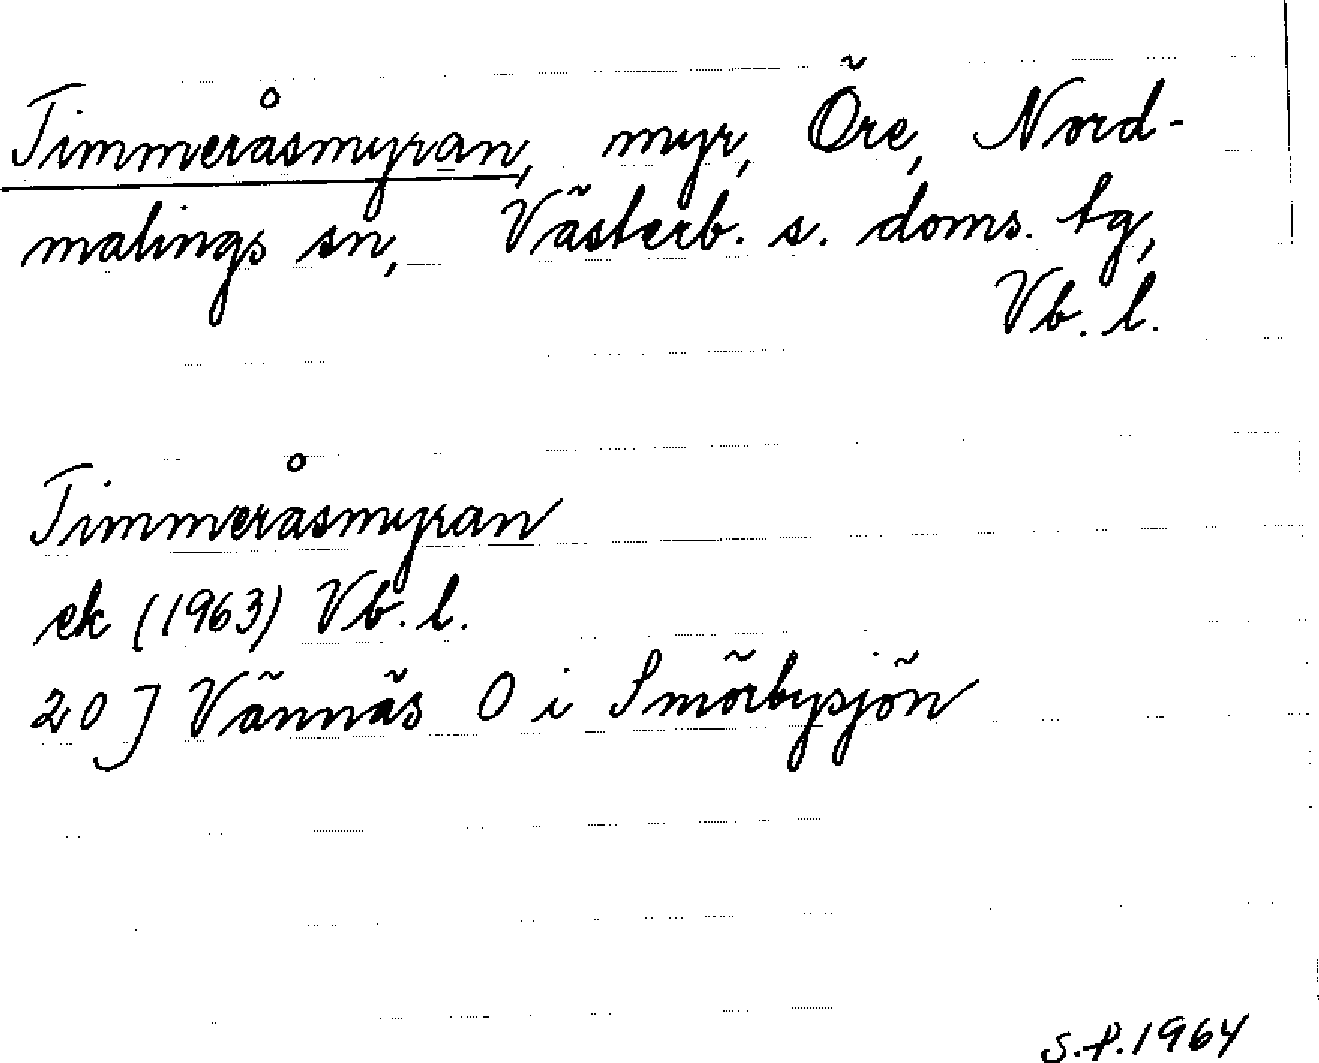 Timmeråsmyran, myr, Öre, Nord-
malings sn, Västerb. s. doms. tg,
Vb. l.
Timmeråsmyran
ek (1963) Vb. l.
20 J Vännäs O i Smörbysjön
S.P. 1964